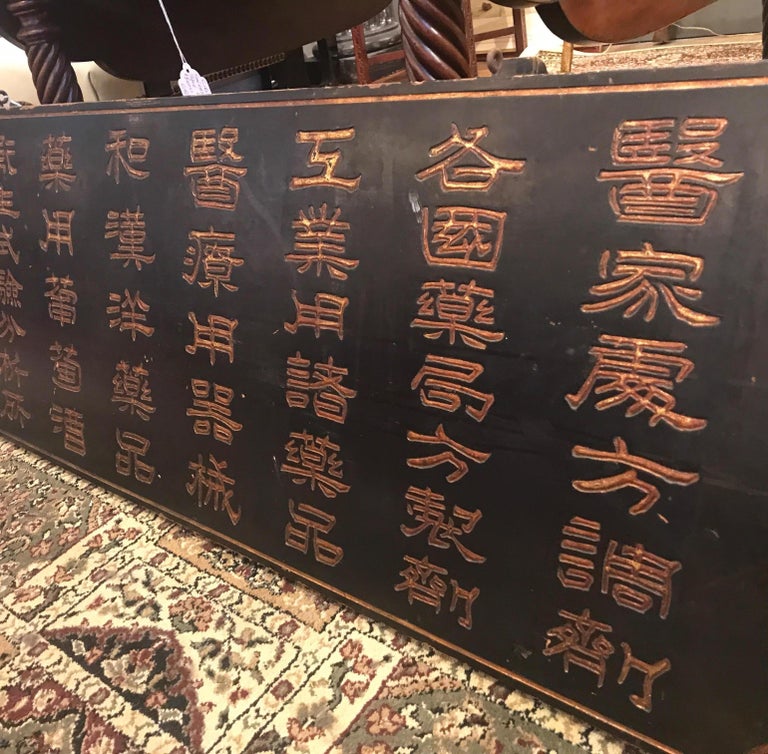 醫家處方調劑
各國藥局方製劑
工業用諸藥品
醫療用器械
和漢洋藥品
藥用葡萄酒
衛生試驗分析所